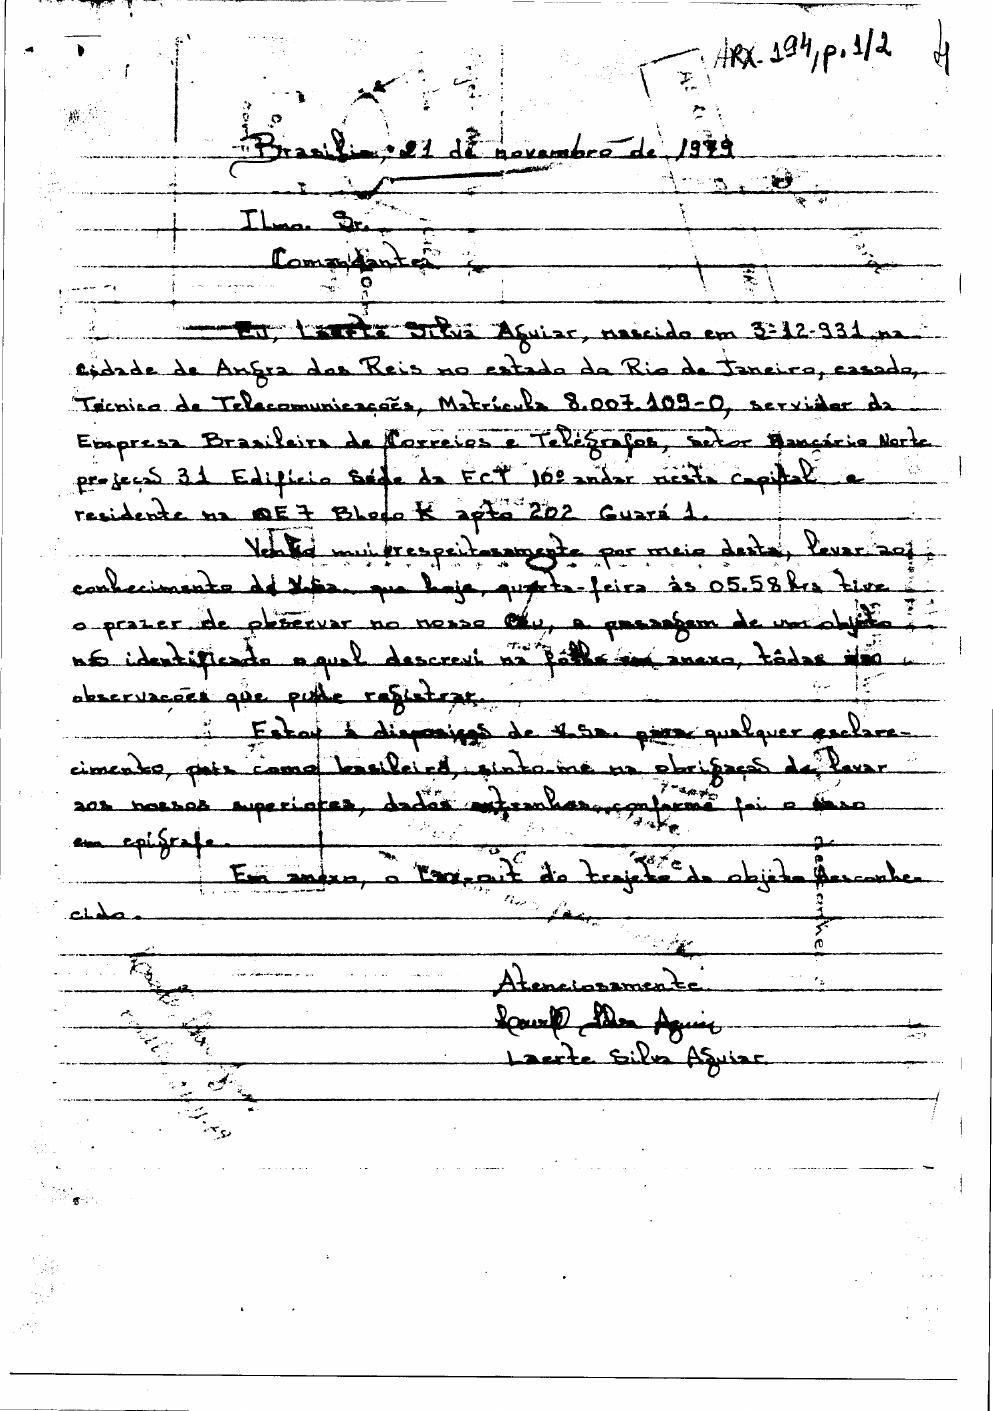 ARX-194, p. 1/2
Brasília, 21 de novembro de 1979
Ilmo. Sr.
Comandante
Eu, Laerte Silva Aguiar, nascido em 3-12-931 na
cidade de Angra dos Reis no estado do Rio de Janeiro, casado,
Técnico de Telecomunicações, Matrícula 8.007.109-0, servidor da
Empresa Brasileira de Correios e Telégrafos, Setor Bancário Norte
projeção 31 Edifício Séde da ECT 10º andar nesta Capital e
residente na QE 7 Bloco K apto 202 Guará 1.
Venho mui respeitosamente por meio desta, levar ao
conhecimento de V.Sa. que hoje, quarta-feira às 05.58 hrs tive
o prazer de observar no nosso Céu, a passagem de um objeto
não identificado o qual descrevi na fôlha em anexo, tôdas as
observações que pude registrar.
Estou à disposição de V.Sa. para qualquer esclare-
cimento, pois como brasileiro, sinto-me na obrigação de levar
aos nossos superiores, dados extranhos, conforme foi o caso
em epígrafe.
Em anexo, o Lay-out do trajeto do objeto desconhe-
cido.
Atenciosamente
Laerte Silva Aguiar
Laerte Silva Aguiar